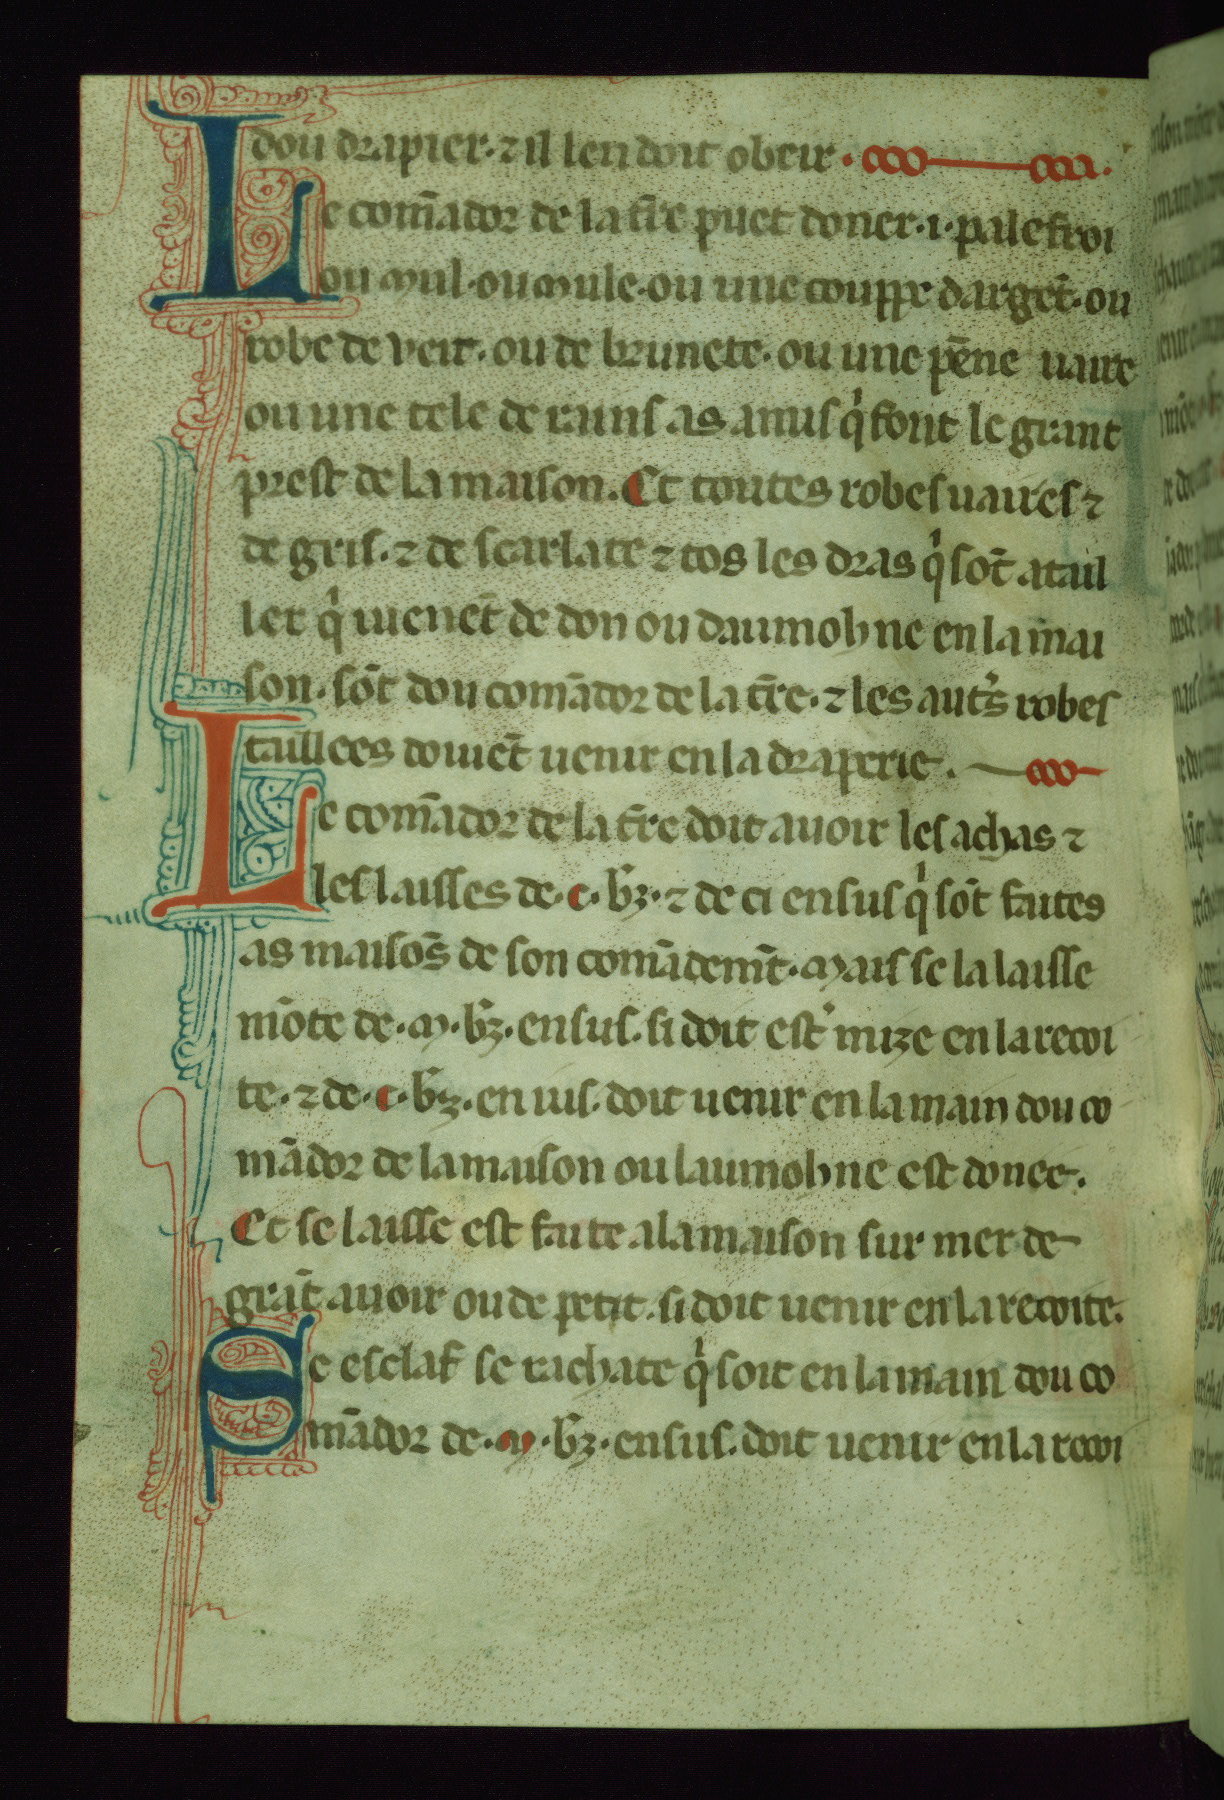 dou drapier· ⁊ il len doit obeir ·
Le comādor de la tr̄e puet doner ·i· palefroi
ou mul · ou mule · ou une couppe dargēt · ou
robe de veir · ou de brunete · ou une pēne uaire
ou une tele de rains as amis q̍ font le grant
prest de la maison. Et toutes robes uaires ⁊
de gris · ⁊ de scarlate ⁊ tos les dras q̍ sōt atail
ler q̍ uienēt de don ou daumohne en la mai
son · sōt dou comādor de la tr̄e · ⁊ les autr̄s robes
taillees doiuēt uenir en la draperie .
Le comādor de la tr̄e doit auoir les achas ⁊
les laisses de · c · bz̄ · ⁊ de ci en sus q̍ sōt faites
as maisōs de son comādemēt · mais se la laisse
mōte de · m · bz̄ · en sus · si doit estr̍ mize en la recoi
te · ⁊ de · c · bz̄ · en ius · doit uenir en la main dou co
mādor de la maison ou laumohne est donee .
Et se laisse est faite a la maison sur mer de
grāt auoir ou de petit · si doit uenir en la recoite.
Se esclaf se rachate q̍ soit en la main dou co
mādor de · m · bz̄ · en sus · doit uenir en la recoi